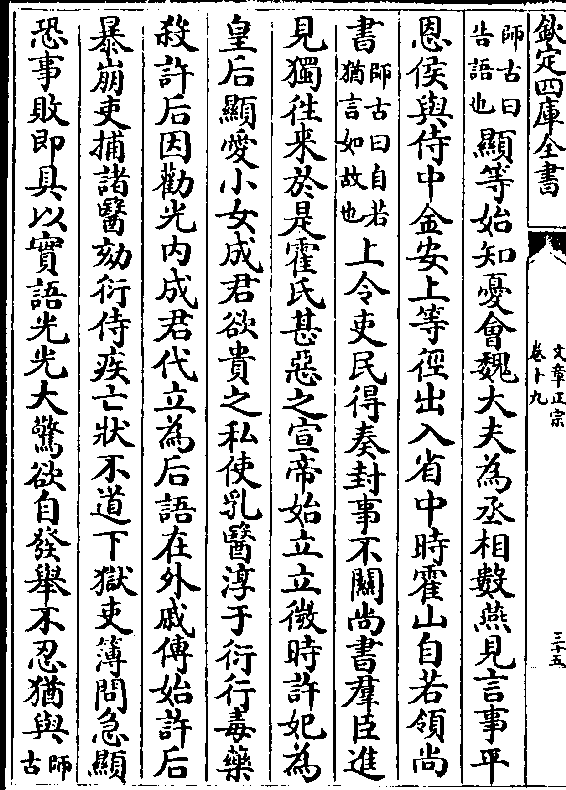 欽定四庫全書
文章正宗
卷十九
三十五
師古曰
告語也
顯等始知憂會魏大夫為丞相數燕見言事平
恩侯與侍中金安上等徑出入省中時霍山自若領尚
書
師古曰自若
猶言如故也
上令吏民得奏封事不關尚書羣臣進
見獨往来於是霍氏甚惡之宣帝始立立微時許妃為
皇后顯愛小女成君欲貴之私使乳醫淳于衍行毒藥
殺許后因勸光内成君代立為后語在外戚傳始許后
暴崩吏捕諸醫劾衍侍疾亡狀不道下獄吏簿問急顯
恐事敗即具以實語光光大驚欲自發舉不忍猶與
師
古